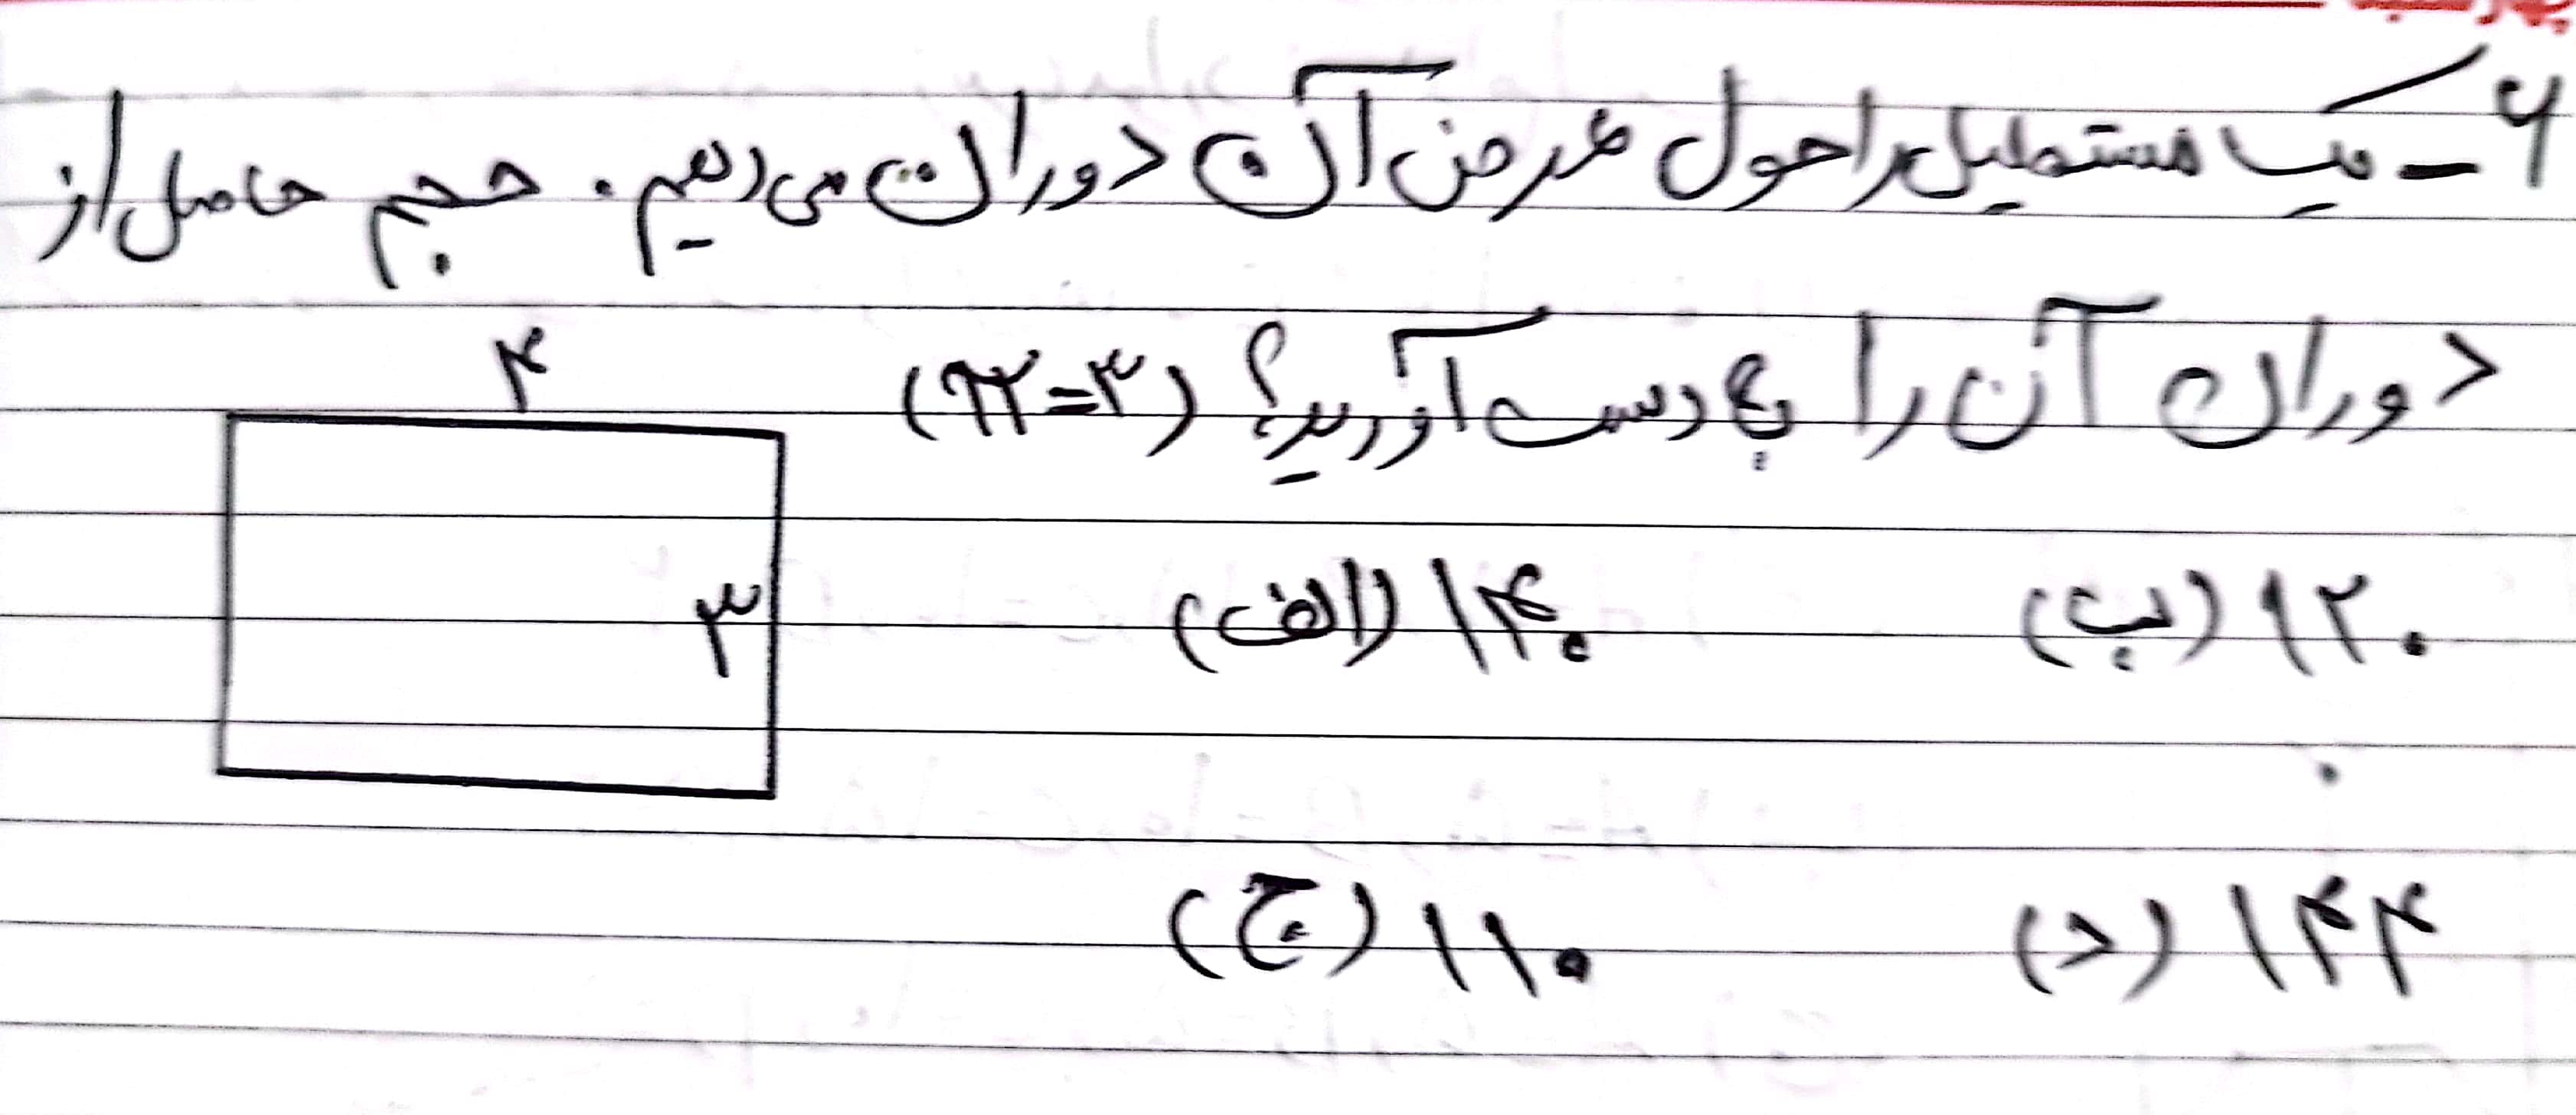 ۶ - یک مستطیل را حول عرض آن دوران می‌دهیم. حجم حاصل از
دوران آن را به دست آورید؟ (π=۳)
۴
۳
الف) ۱۴۰
ب) ۱۲۰
ج) ۱۱۰
د) ۱۴۴